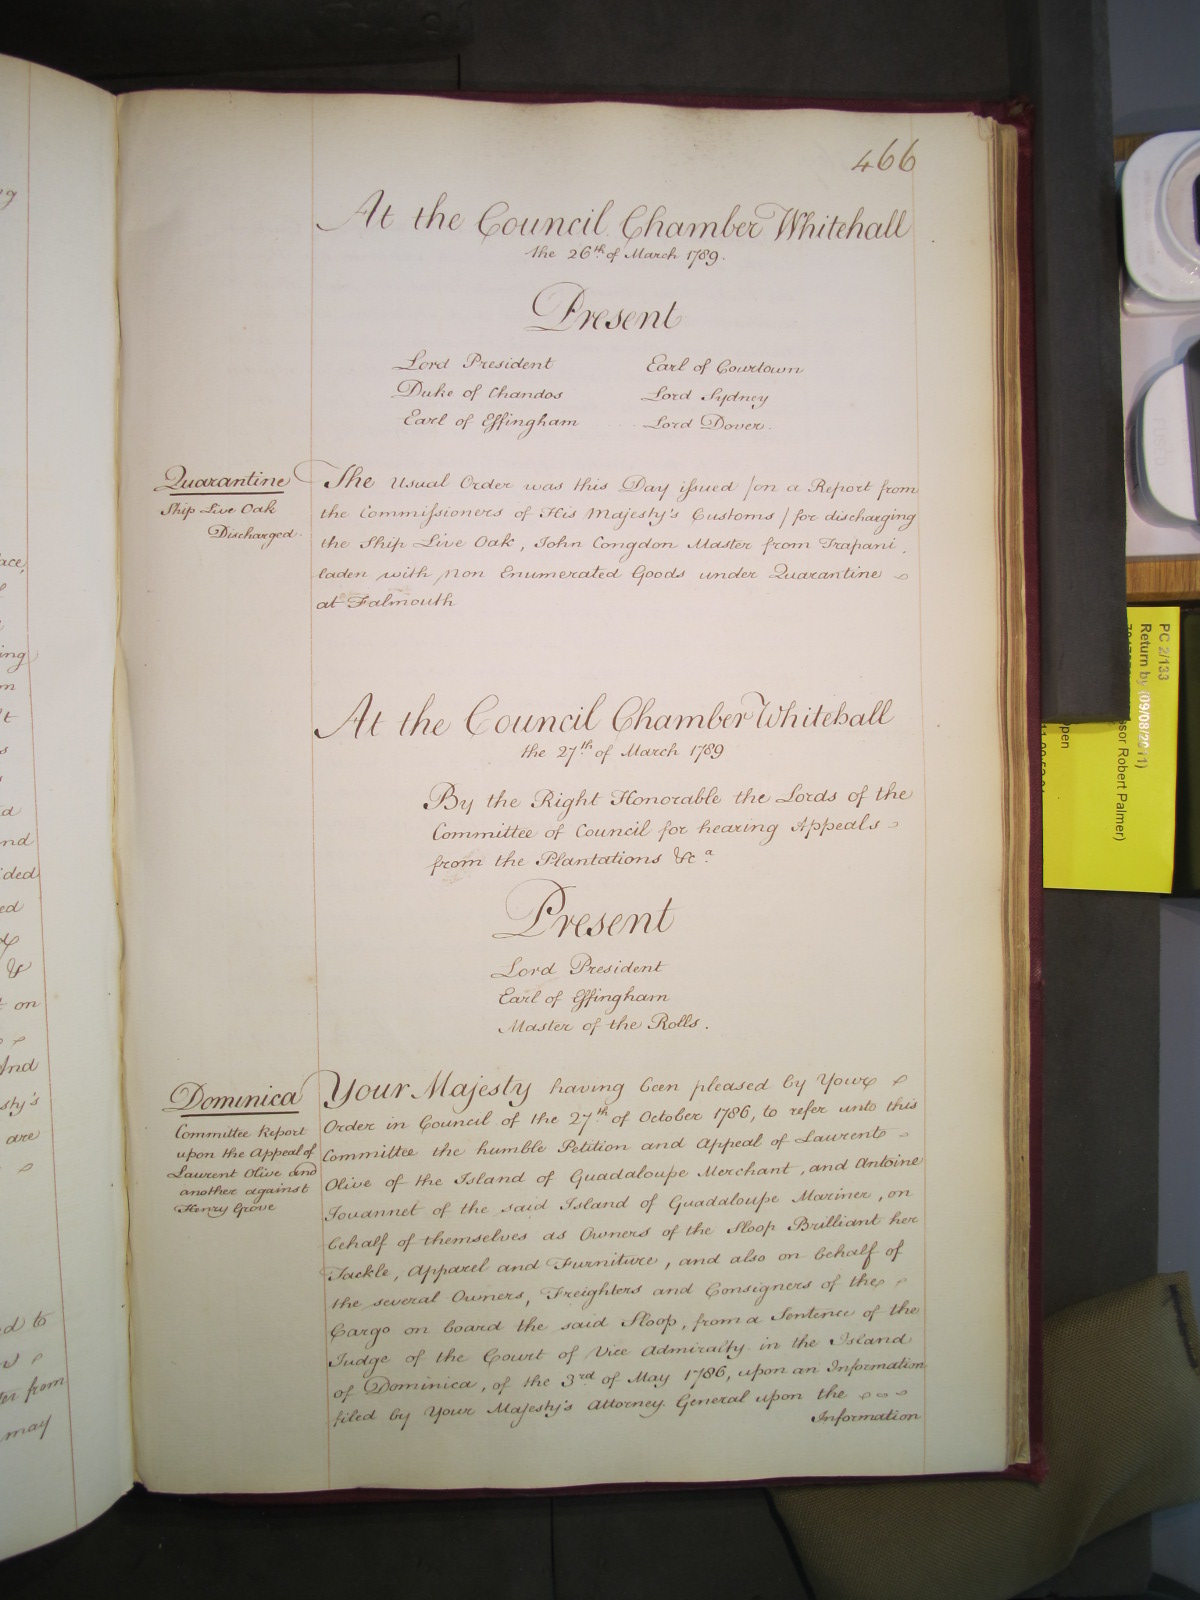 466
At the Council Chamber Whitehall
the 26th of March 1789.
Present
Lord President
Duke of Chandos
Earl of Effingham
Earl of Courtown
Lord Sydney
Lord Dover.
Quarantine
Ship Live Oak
Discharged.
The Usual Order was this Day issued /on a Report from
the Commissioners of His Majesty's Customs / for discharging
the Ship Live Oak, John Congdon Master from Trapani,
laden with Non Enumerated Goods under Quarantine
at Falmouth
At the Council Chamber Whitehall
the 27th of March 1789
By the Right Honorable the Lords of the
Committee of Council for hearing Appeals
from the Plantations &ca
Present
Lord President
Earl of Effingham
Master of the Rolls.
Dominica
Committee Report
upon the Appeal of
Laurent Olive and
another against
Henry Grove
Your Majesty having been pleased by Your
Order in Council of the 27th of October 1786, to refer unto this
Committee the humble Petition and Appeal of Laurent
Olive of the Island of Guadaloupe Merchant, and Antoine
Jouannet of the said Island of Guadaloupe Mariner, on
behalf of themselves as Owners of the Sloop Brilliant her
Tackle, Apparel and Furniture, and also on behalf of
the several Owners, Freighters and Consigners of the
Cargo on board the said Sloop, from a Sentence of the
Judge of the Court of Vice Admiralty in the Island
of Dominica, of the 3rd of May 1786, upon an Information
filed by Your Majesty's Attorney General upon the
Information
PC 2/133
Return by (09/08/2011)
ssor Robert Palmer)
pen
ace,
ing
m
nd
ided
ed
&
t on
And
sty's
are
d to
from
may